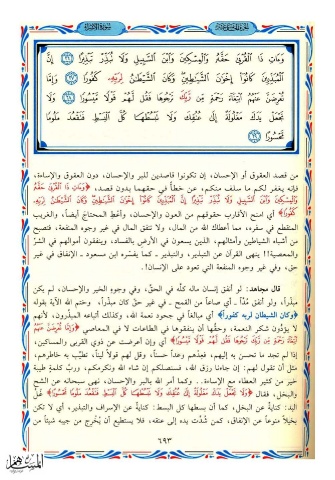 وَءَاتِ ذَا الْقُرْبَىٰ حَقَّهُ وَالْمِسْكِينَ وَابْنَ السَّبِيلِ وَلَا تُبَذِّرْ تَبْذِيرًا إِنَّ
الْمُبَذِّرِينَ كَانُوا إِخْوَانَ الشَّيَاطِينِ وَكَانَ الشَّيْطَانُ لِرَبِّهِ كَفُورًا وَإِمَّا
تُعْرِضَنَّ عَنْهُمُ ابْتِغَاءَ رَحْمَةٍ مِن رَّبِّكَ تَرْجُوهَا فَقُل لَّهُمْ قَوْلًا مَّيْسُورًا وَلَا
تَجْعَلْ يَدَكَ مَغْلُولَةً إِلَىٰ عُنُقِكَ وَلَا تَبْسُطْهَا كُلَّ الْبَسْطِ فَتَقْعُدَ مَلُومًا
مَّحْسُورًا
من قصد العقوق أو الإحسان، إن تكونوا قاصدين للبر والإحسان، دون العقوق والإساءة،
فإنه يغفر لكم ما سلف منكم، عن خطأ في حقهما بدون قصد، ﴿وَءَاتِ ذَا الْقُرْبَىٰ حَقَّهُ
وَالْمِسْكِينَ وَابْنَ السَّبِيلِ وَلَا تُبَذِّرْ تَبْذِيرًا إِنَّ الْمُبَذِّرِينَ كَانُوا إِخْوَانَ الشَّيَاطِينِ وَكَانَ الشَّيْطَانُ لِرَبِّهِ
كَفُورًا﴾ أي امنح الأقارب حقوقهم من العون والإحسان، وأعط المحتاج أيضاً، والغريب
المنقطع في سفره، مما أعطاك الله من المال، ولا تنفق المال في غير وجوه المنفعة، فتصبح
من أشباه الشياطين وأمثالهم، الذين يسعون في الأرض بالفساد، وينفقون أموالهم في الشرّ
والمعصية!! ينهى القرآن عن التبذير، والتبذير ـ كما يفسّره ابن مسعود ـ الإنفاق في غير
حق، وفي غير وجوه المنفعة التي تعود على الإنسان!.
قال مجاهد: لو أنفق إنسان ماله كلّه في الحقّ، وفي وجوه الخير والإحسان، لم يكن
مبذّراً، ولو أنفق مُدّاً ـ أي صاعاً من القمح ـ في غير حقّ كان مبذّراً، وختم الله الآية بقوله
﴿وكان الشيطان لربه كفوراً﴾ أي مبالغاً في جحود نعمة الله، وكذلك أتباعه المبذّرون، لأنهم
لا يؤدّون شكر النعمة، وحقُّها أن ينفقوها في الطاعات لا في المعاصي ﴿وَإِمَّا تُعْرِضَنَّ عَنْهُمُ
ابْتِغَاءَ رَحْمَةٍ مِن رَّبِّكَ تَرْجُوهَا فَقُل لَّهُمْ قَوْلًا مَّيْسُورًا﴾ أي وإن أعرضت عن ذوي القربى والمساكين،
إذا لم تجد ما تحسن به إليهم، فعِدْهم وعداً حسناً، وقل لهم قولاً ليناً، تطيّب به خاطرهم،
مثل أن تقول لهم: إن جاءنا رزق الله، فسنصلكم إن شاء الله ونكرمكم، وربّ كلمة طيبة
خير من كثير العطاء مع الإساءة.. وكما أمر الله بالبر والإحسان، نهى سبحانه عن الشح
والبخل، فقال ﴿وَلَا تَجْعَلْ يَدَكَ مَغْلُولَةً إِلَىٰ عُنُقِكَ وَلَا تَبْسُطْهَا كُلَّ الْبَسْطِ فَتَقْعُدَ مَلُومًا مَّحْسُورًا﴾ غُلّ
اليد: كناية عن البخل، كما أن بسطها كل البسط: كناية عن الإسراف والتبذير، أي لا تكن
بخيلاً منوعاً عن الإنفاق، كمن شُدّت يده إلى عنقه، فلا يستطيع أن يُخرج من جيبه شيئاً من
٦٩٣